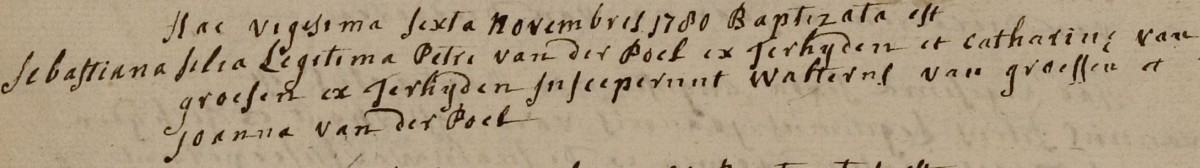 Hac vigesima sexta Novembris 1780 Baptizata est
Sebastiana filia Legitima Petri van der Poel ex Terhyden et Catharinę van
groesen ex Terhyden susceperunt Walterus van groessen et
Joanna van der Poel